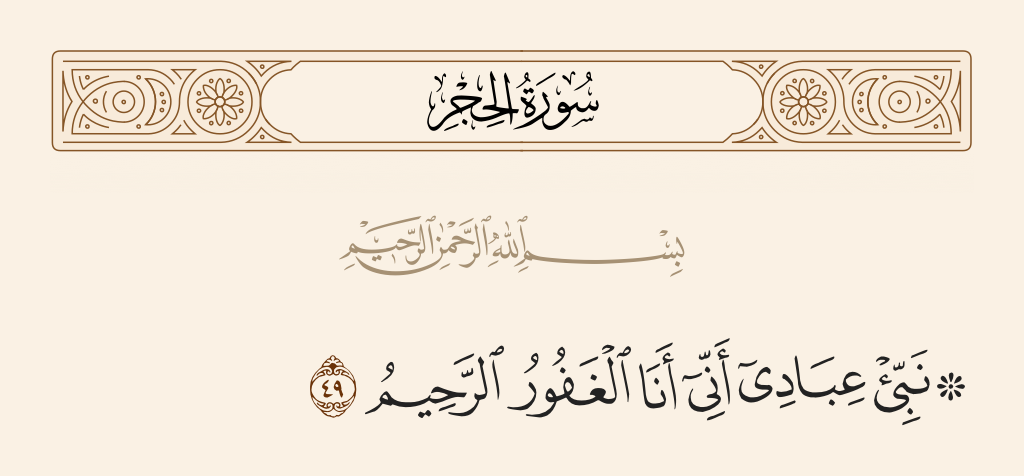 سُورَةُ الحِجْرِ
بِسْمِ ٱللَّهِ ٱلرَّحْمَٰنِ ٱلرَّحِيمِ
۞ نَبِّئْ عِبَادِىٓ أَنِّىٓ أَنَا ٱلْغَفُورُ ٱلرَّحِيمُ ٤٩